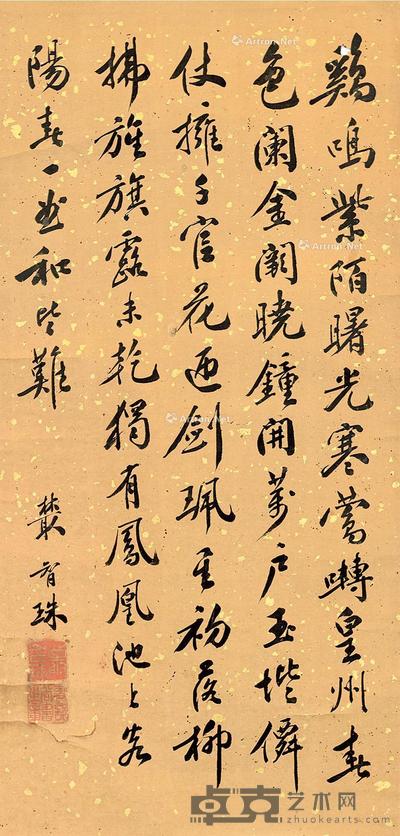 鷄鳴紫陌曙光寒鶯囀皇州春
色闌金闕曉鐘開萬戶玉堦僊
仗擁千官花迎劍珮星初落柳
拂旌旗露未乾獨有鳳凰池上客
陽春一曲和皆難
智珠
Artron.Net
Artron.Net
Artron.Net
Artron.Net
Artron.Net
卓克艺术网
zhuokearts.com